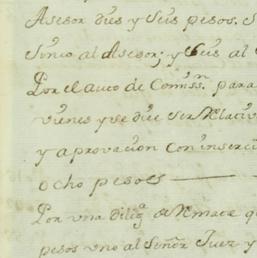 Asesor dies y seis pesos. S
sinco al Asesor; y seis al
Por el auto de Comissn. para
vienes y se dice ser Relativ
y aprovacion con inserci
ocho pesos
Por una dilig. de Remate q
pesos uno al Señor Juez y